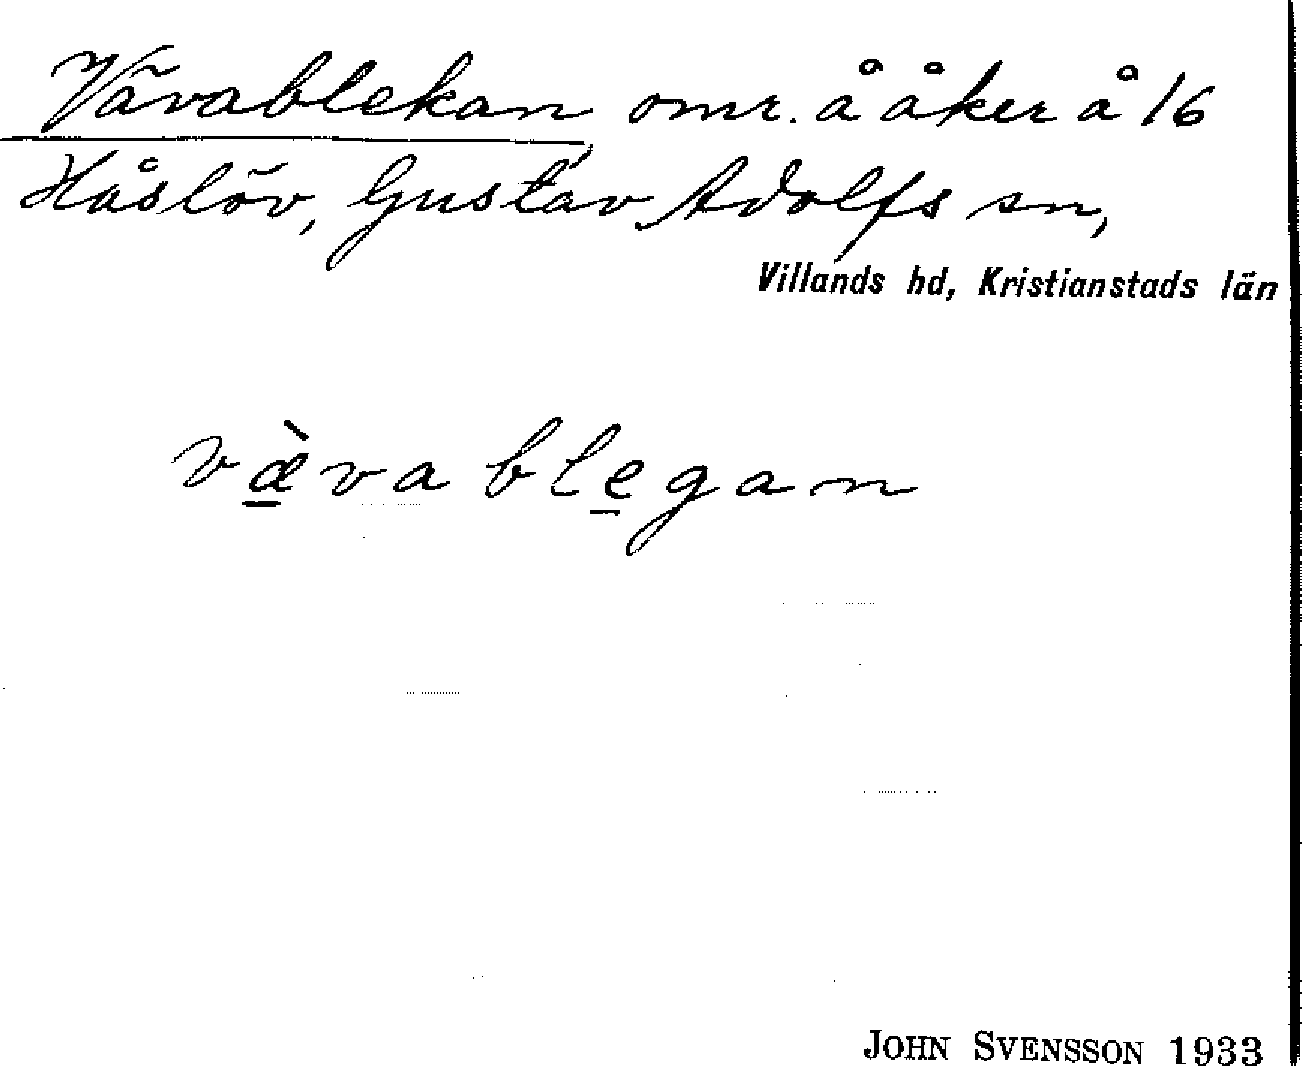 Vävablekan, omr. å åker å 16
Håslöv, Gustav Adolfs sn,
Villands hd, Kristianstads län
væ̠̀va ble̠gan
JOHN SVENSSON 1933